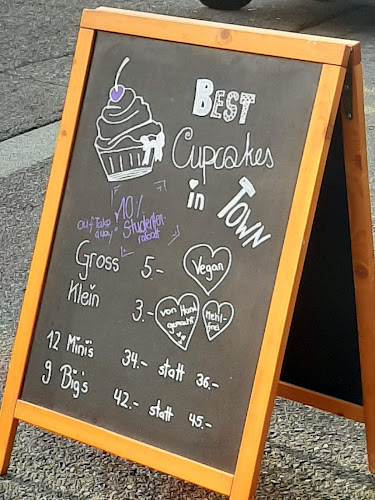 BEST
Cupcakes
in
TOWN
10%
auf Take
away
Studenten-
rabatt
Gross 5.-
Vegan
Klein 3.-
von Hand
gemacht
Mehl-
frei
12 Minis 34.- statt 36.-
9 Big's 42.- statt 45.-